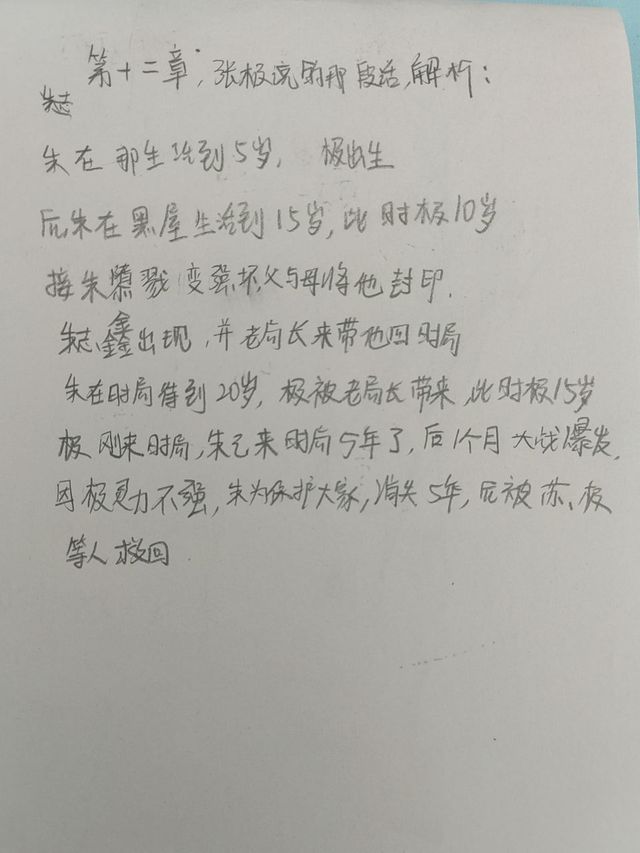 第十二章,张极说的那段话,解析:
朱志
朱在那生活到5岁, 极出生
后朱在黑屋生活到15岁,此时极10岁
接朱 戮变强坏父与母将他封印.
朱志鑫出现,并老局长来带他回时局
朱在时局待到20岁,极被老局长带来,此时极15岁
极刚来时局,朱已来时局5年了,后1个月大战爆发,
因极灵力不强,朱为保护大家,消失5年,后被苏、极
等人救回